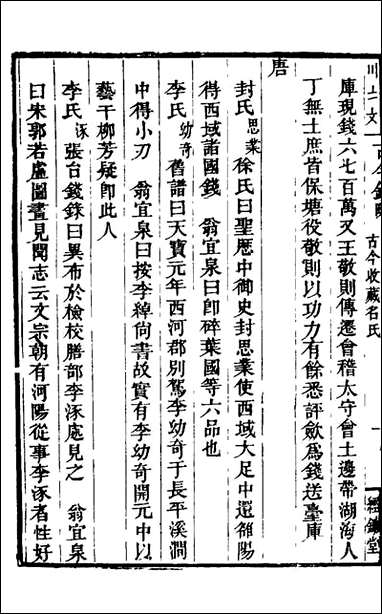 古今收藏名氏
庫現錢六七百萬又王敬則傳遷會稽太守會土邊帶湖海人
丁無士庶皆保塘役敬則以功力有餘悉評斂爲錢送臺庫
唐
封氏思業徐氏曰聖歷中御史封思業使西域大足中還雒陽
得西域諸國錢 翁宜泉曰卽碎葉國等六品也
李氏幼奇舊譜曰天寶元年西河郡別駕李幼奇于長平溪澗
中得小刃 翁宜泉曰按李綽尙書故實有李幼奇開元中以
藝干柳芳疑卽此人
李氏涿張台錢錄曰異布於檢校膳部李涿處見之 翁宜泉
曰宋郭若虛圖畫見聞志云文宗朝有河陽從事李涿者性好